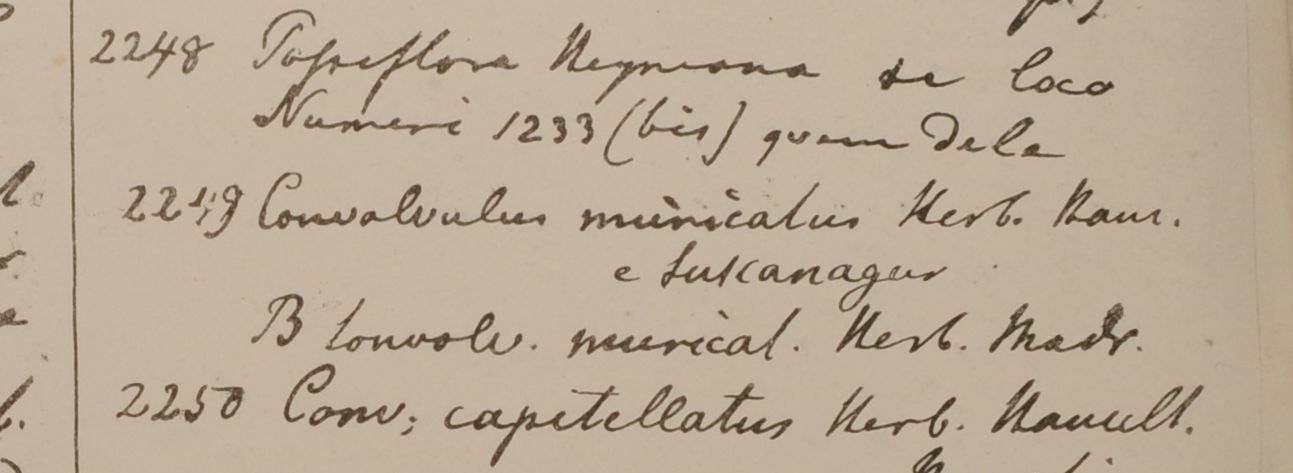 2248 Passiflora Heyneana de loco
Numeri 1233 (bis) quam dela
2249 Convolvulus muricatus Herb. Ham.
e Sukanagur
B Convolv. murical. Herb. Madr.
2250 Conv; capitellatus Herb. Hamilt.